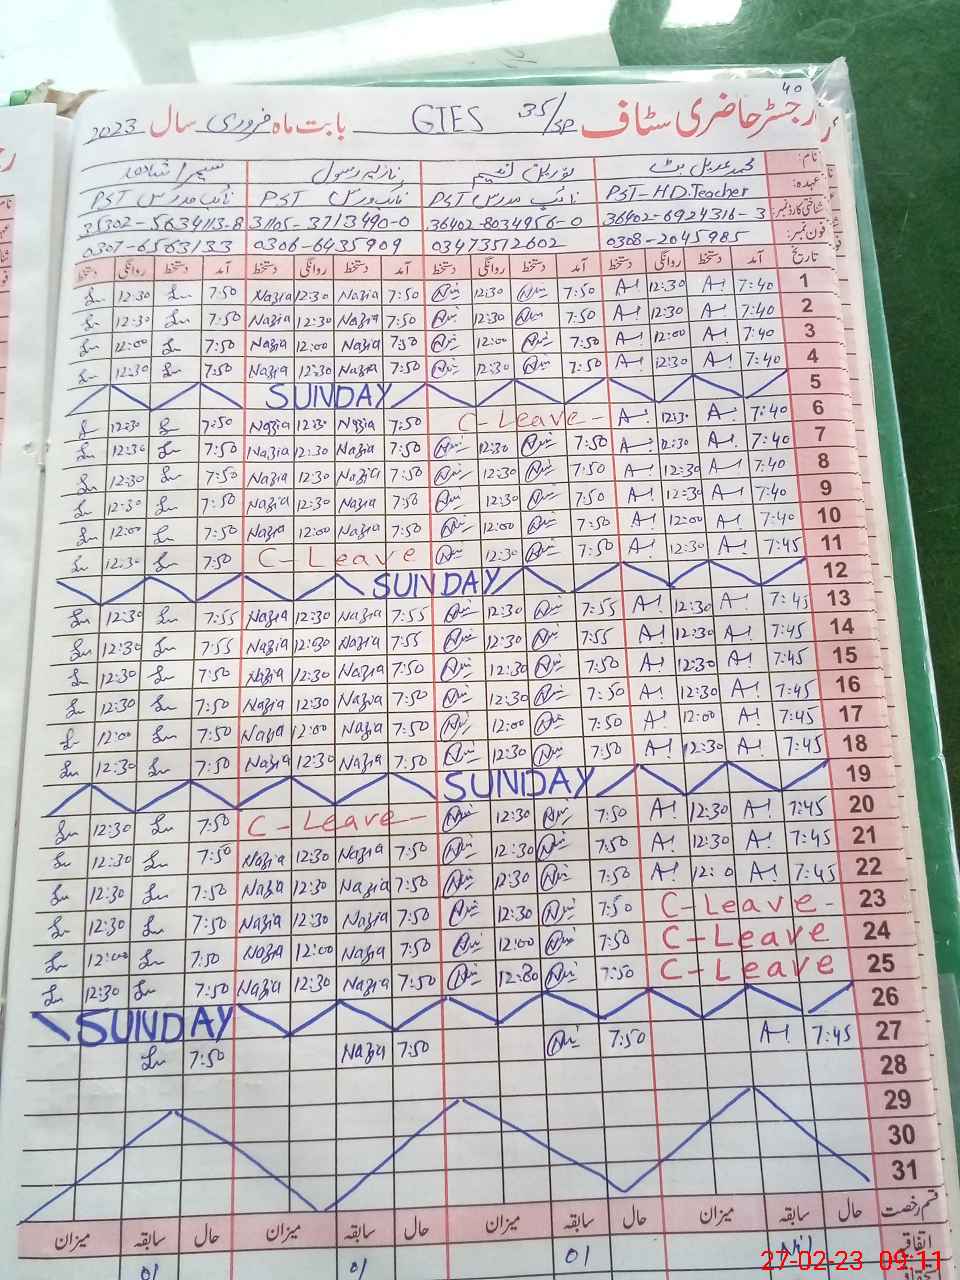 40
رجسٹر حاضری سٹاف 35/SP GTES بابت ماہ فروری سال 2023
نام: محمد عدیل بٹ نورین نسیم نازیہ رسول
عہدہ: PST-H.D.Teacher نائب مدرس PST نائب مدرس PST نائب مدرس PST
شناختی کارڈ نمبر: 36402-6924316-3 36402-8034956-0 31105-3713490-0 35302-5634113-8
فون نمبر: 0308-2045985 03473512602 0306-6435909 0307-6563133
تاریخ آمد دستخط روانگی دستخط آمد دستخط روانگی دستخط آمد دستخط روانگی دستخط آمد دستخط روانگی دستخط
1 7:40 A-! 12:30 A-! 7:50 12:30 7:50 Nazia 12:30 Nazia 7:50 12:30
2 7:40 A-! 12:30 A-! 7:50 12:30 7:50 Nazia 12:30 Nazia 7:50 12:30
3 7:40 A-! 12:00 A-! 7:50 12:00 7:50 Nazia 12:00 Nazia 7:50 12:00
4 7:40 A-! 12:30 A-! 7:50 12:30 7:50 Nazia 12:30 Nazia 7:50 12:30
5 SUNDAY
6 7:40 A-! 12:30 A-! C-Leave- 7:50 Nazia 12:30 Nazia 7:50 12:30
7 7:40 A-! 12:30 A-! 7:50 12:30 7:50 Nazia 12:30 Nazia 7:50 12:30
8 7:40 A-! 12:30 A-! 7:50 12:30 7:50 Nazia 12:30 Nazia 7:50 12:30
9 7:40 A-! 12:30 A-! 7:50 12:30 7:50 Nazia 12:30 Nazia 7:50 12:30
10 7:40 A-! 12:00 A-! 7:50 12:00 7:50 Nazia 12:00 Nazia 7:50 12:00
11 7:45 A-! 12:30 A-! 7:50 12:30 C-Leave 7:50 12:30
12 SUNDAY
13 7:45 A-! 12:30 A-! 7:55 12:30 7:55 Nazia 12:30 Nazia 7:55 12:30
14 7:45 A-! 12:30 A-! 7:55 12:30 7:55 Nazia 12:30 Nazia 7:55 12:30
15 7:45 A-! 12:30 A-! 7:50 12:30 7:50 Nazia 12:30 Nazia 7:50 12:30
16 7:45 A-! 12:30 A-! 7:50 12:30 7:50 Nazia 12:30 Nazia 7:50 12:30
17 7:45 A-! 12:00 A-! 7:50 12:00 7:50 Nazia 12:00 Nazia 7:50 12:00
18 7:45 A-! 12:30 A-! 7:50 12:30 7:50 Nazia 12:30 Nazia 7:50 12:30
19 SUNDAY
20 7:45 A-! 12:30 A-! 7:50 12:30 C-Leave- 7:50 12:30
21 7:45 A-! 12:30 A-! 7:50 12:30 7:50 Nazia 12:30 Nazia 7:50 12:30
22 7:45 A-! 12:0 A-! 7:50 12:30 7:50 Nazia 12:30 Nazia 7:50 12:30
23 C-Leave- 7:50 12:30 7:50 Nazia 12:30 Nazia 7:50 12:30
24 C-Leave 7:50 12:00 7:50 Nazia 12:00 Nazia 7:50 12:00
25 C-Leave 7:50 12:30 7:50 Nazia 12:30 Nazia 7:50 12:30
26 SUNDAY
27 7:45 A-! 7:50 7:50 Nazia 7:50
28
29
30
31
قسم رخصت حال سابقہ میزان حال سابقہ میزان حال سابقہ میزان حال سابقہ میزان
اتفاقیہ Nil 01 01 01
27-02-23 09:11